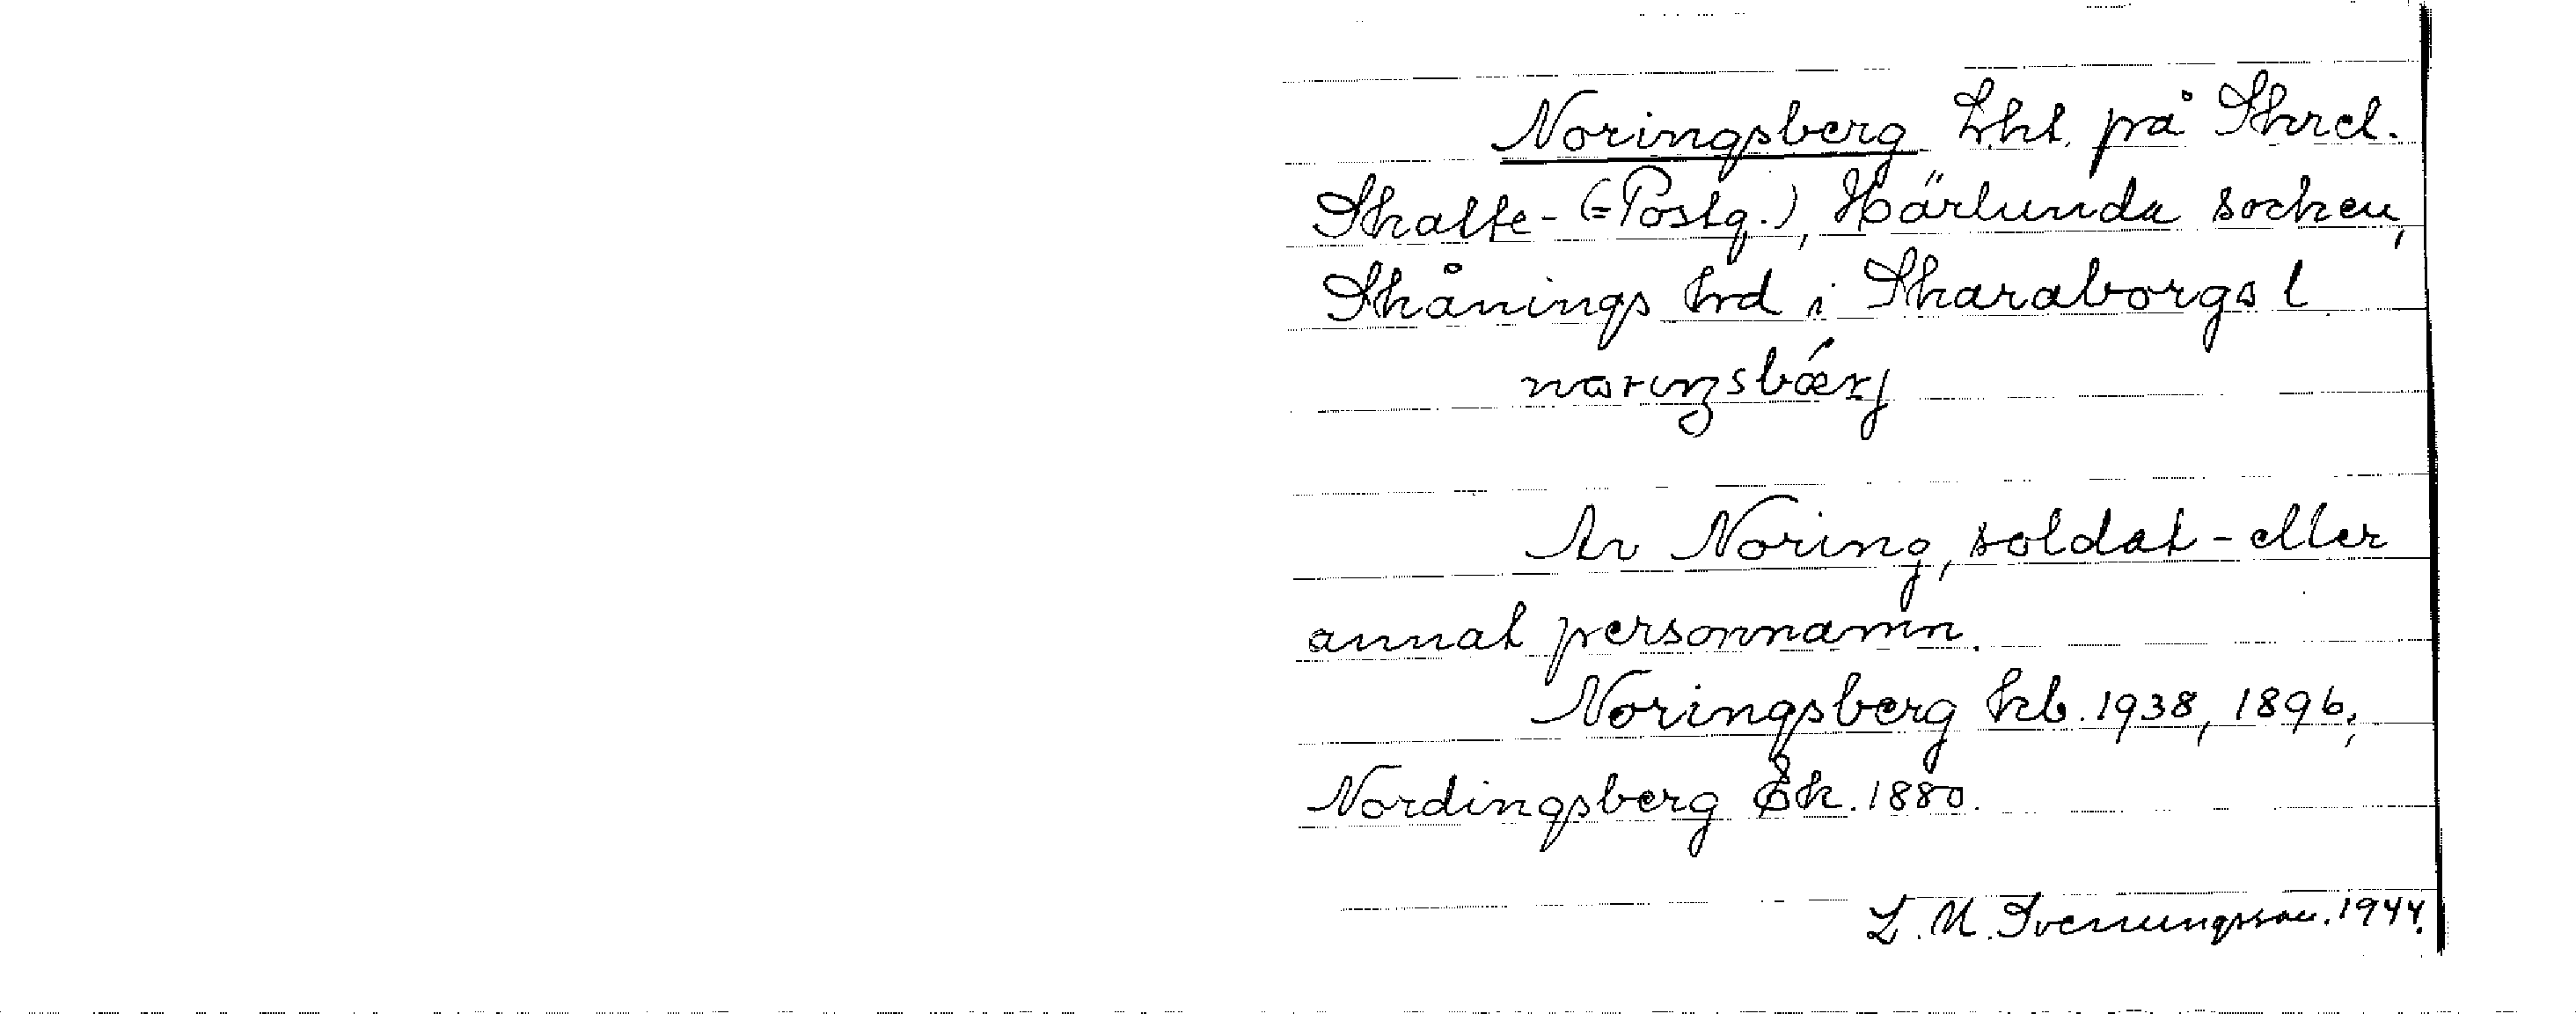 Noringsberg Lht. på Skrel.
Skatte- (=Postg.), Härlunda socken,
Skånings hrd i Skaraborgs l.
Av Noring, soldat- eller
annat personnamn.
Noringsberg kb. 1938, 1896,
Nordingsberg Ek. 1880.
L. M. Svenungsson. 1944.